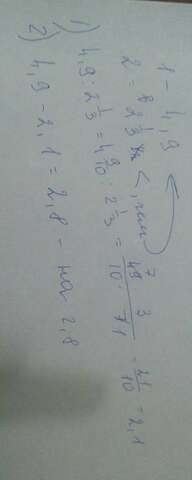 1 - 4,9
2 - в 2 1/3 <, чем
1) 4,9 : 2 1/3 = 4 9/10 : 2 1/3 = 49 · 3 / 10 · 7 = 21/10 = 2,1
2) 4,9 - 2,1 = 2,8 - на 2,8